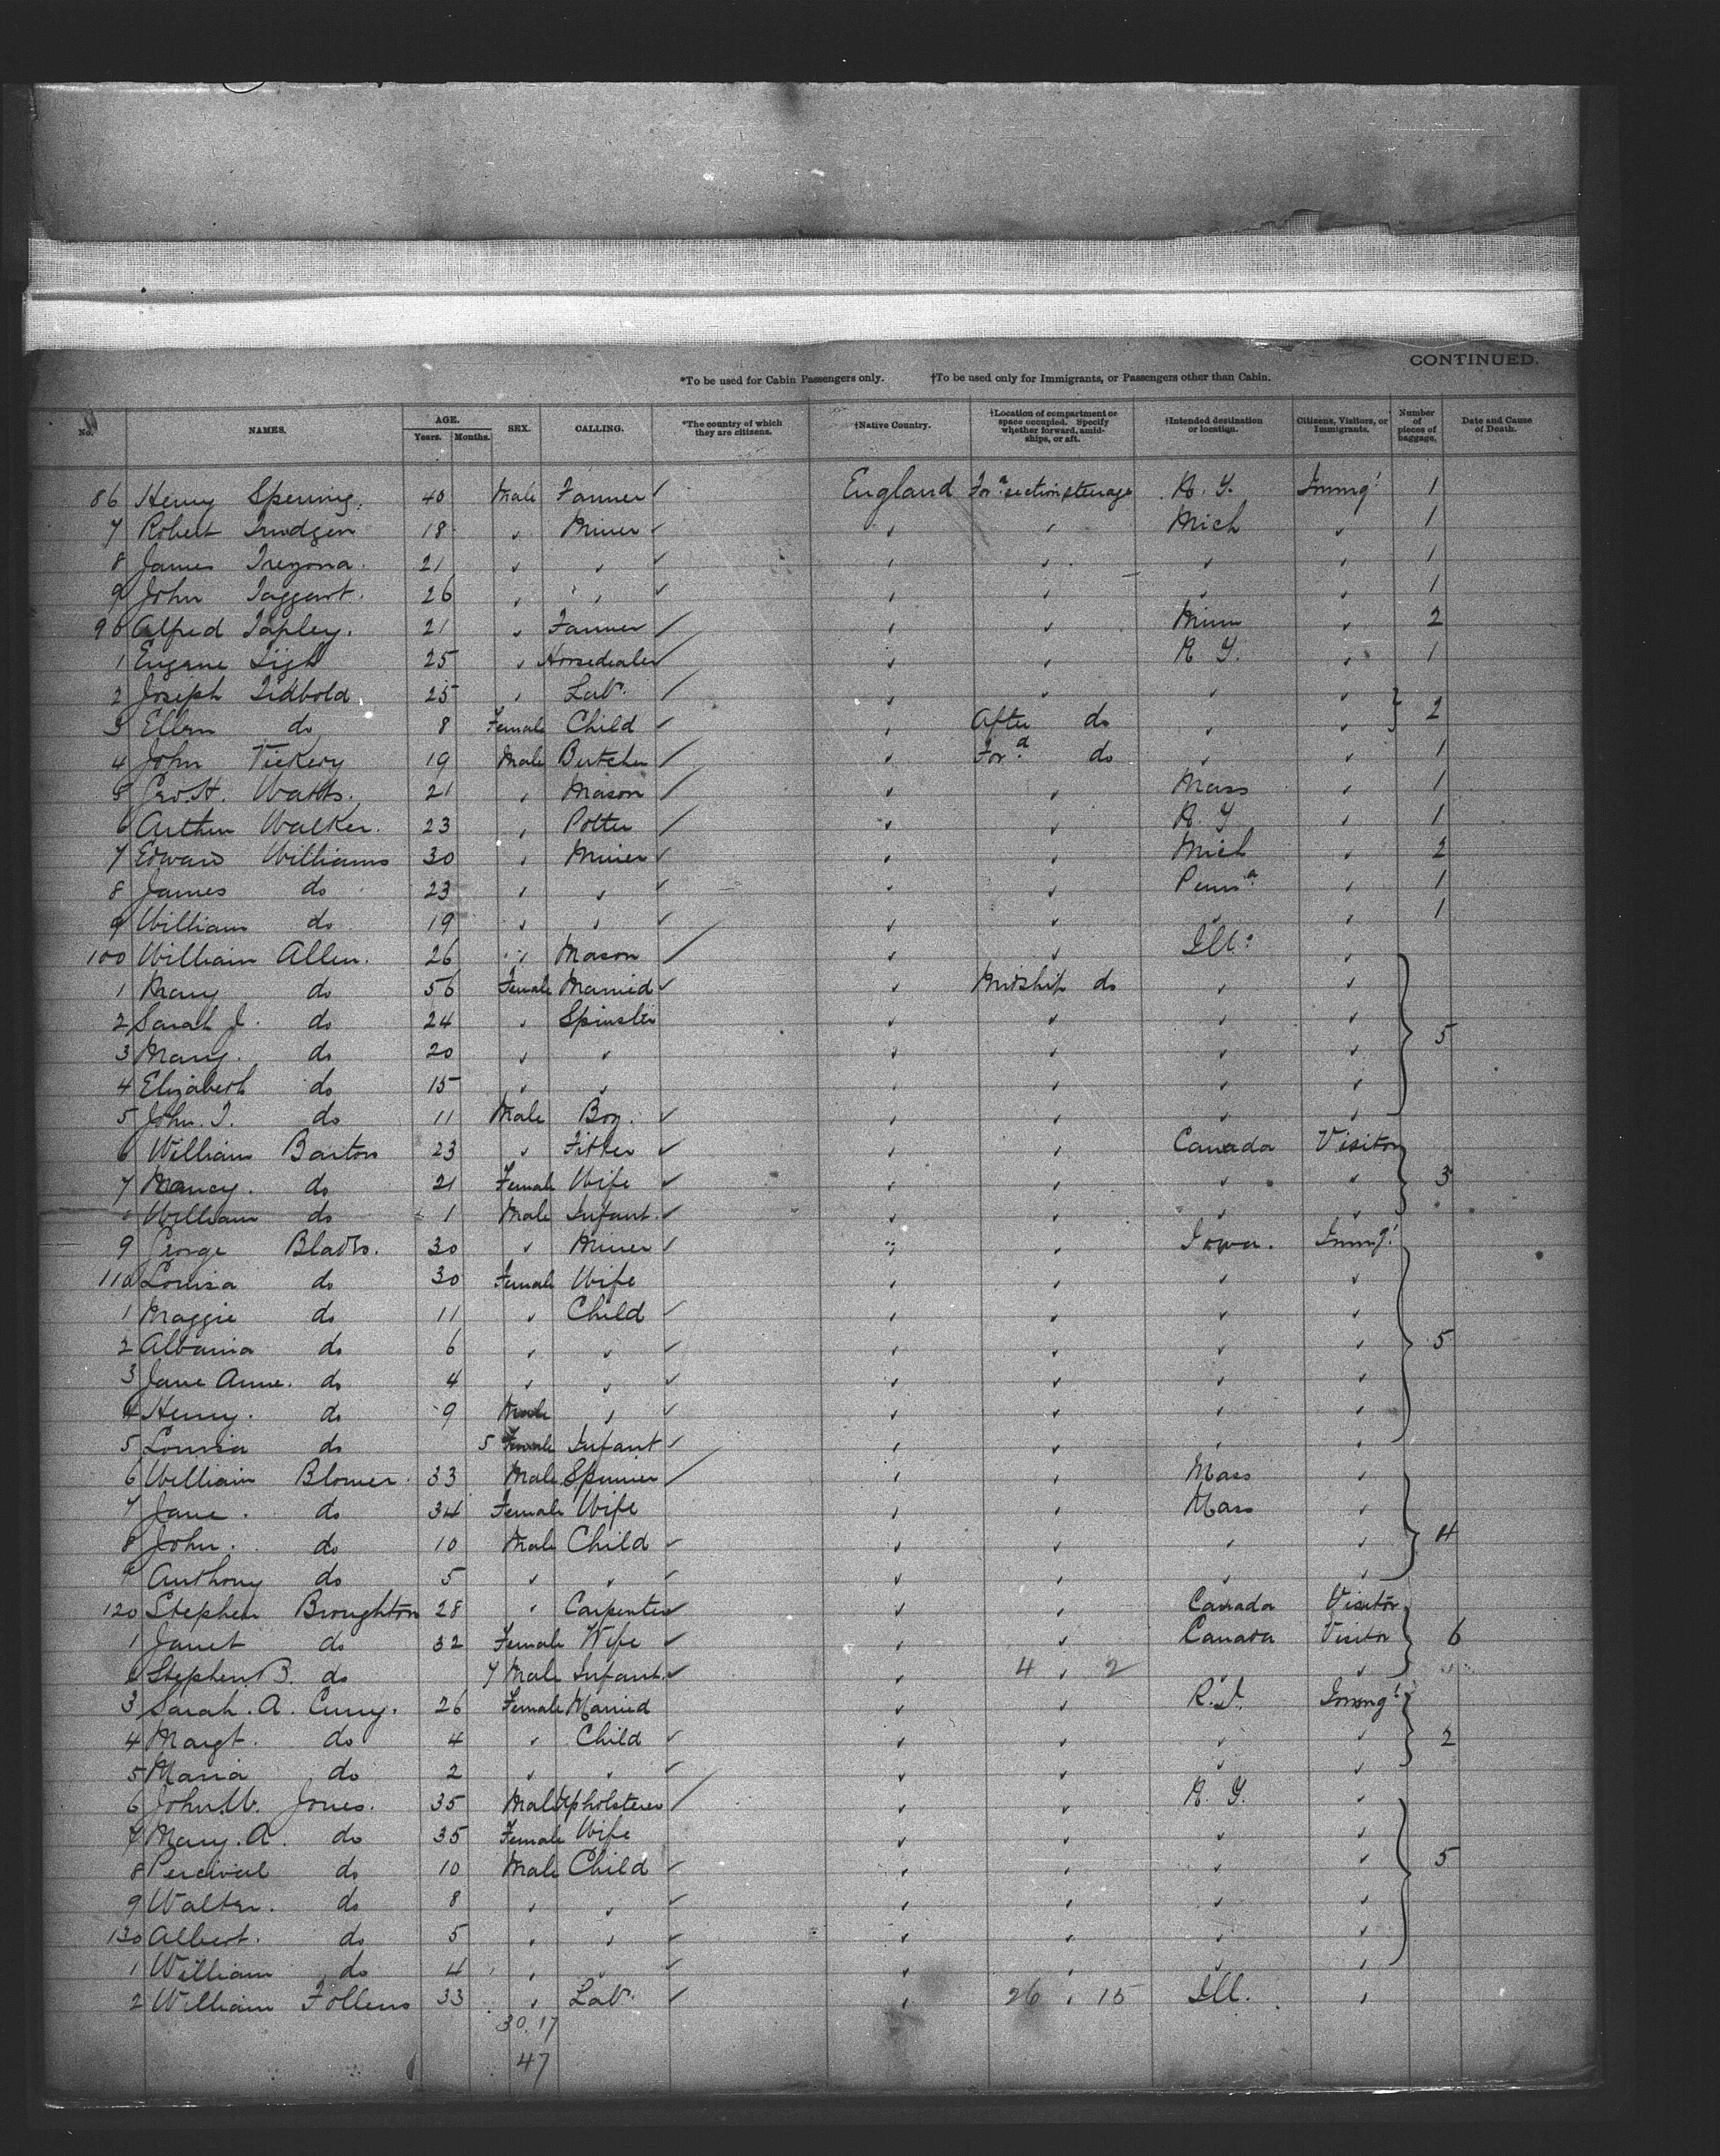 CONTINUED.
*To be used for Cabin Passengers only. †To be used only for Immigrants, or Passengers other than Cabin.
No. NAMES. AGE. Years. Months. SEX. CALLING. *The country of which they are citizens. †Native Country. †Location of compartment or space occupied. Specify whether forward, amidships, or aft. †Intended destination or location. Citizens, Visitors, or Immigrants. Number of pieces of baggage. Date and Cause of Death.
86 Henry 40 Male Farmer ✓ England For.d section steerage N. Y. Immigt 1
7 Robert Trudgen 18 " Miner ✓ " " Mich " 1
8 James Tregona. 21 " " ✓ " " " " 1
9 John Taggart. 26 " " ✓ " " " " 1
90 Alfred Tapley. 21 " Farmer ✓ " " Minn " 2
1 Eugene 25 " Horsedealer ✓ " " N Y. " 1
2 Joseph Tidbold 25 " Labr. ✓ " " " "
3 Ellen do 8 Female Child ✓ " After do " " } 2
4 John Vickery 19 Male Butcher ✓ " For.d do " " 1
5 Geo H. Watts. 21 " Mason ✓ " " Mass " 1
6 Arthur Walker. 23 " Potter ✓ " " N. Y " 1
7 Edward Williams 30 " Miner ✓ " " Mich " 2
8 James do 23 " " ✓ " " Penna. " 1
9 William do 19 " " ✓ " " " " 1
100 William Allen. 26 " Mason ✓ " " Ill. "
1 Mary do 56 Female Married ✓ " Midship do " "
2 Sarah J. do 24 " Spinster " " " "
3 Mary. do 20 " " " " " " } 5
4 Elizabeth do 15 " " " " " "
5 John. T. do 11 Male Boy. ✓ " " " "
6 William Barton 23 " Fitter ✓ " " Canada Visitor
7 Nancy. do 21 Female Wife ✓ " " " " } 3
" William do 1 Male Infant. ✓ " " " "
9 George 30 " Miner ✓ " " Iowa. Immigt
110 Louisa do 30 Female Wife " " " "
1 Maggie do 11 " Child ✓ " " " "
2 Albania do 6 " " ✓ " " " " } 5
3 Jane Anne. do 4 " " ✓ " " " "
4 Henry. do 9 Male " ✓ " " " "
5 Louisa do 5 Female Infant ✓ " " " "
6 William Blomer. 33 Male Spinner ✓ " " Mass "
7 Jane. do 34 Female Wife " " Mass "
8 John. do 10 Male Child ✓ " " " " } 4
9 Anthony do 5 " " ✓ " " " "
120 Stephen Broughton 28 " Carpenter ✓ " " Canada Visitor
1 Janet do 32 Female Wife ✓ " " Canada Visitor } 6
2 Stephen B. do 7 Male Infant. ✓ " 4 " 2 " "
3 Sarah. A. Curry. 26 Female Married " " R. I. Immigt
4 Margt. do 4 " Child ✓ " " " " } 2
5 Maria do 2 " " ✓ " " " "
6 John. W. Jones. 35 Male Upholsterer ✓ " " N. Y. "
7 Mary. A. do 35 Female Wife " " " "
8 Percival do 10 Male Child ✓ " " " " } 5
9 Walter. do 8 " " ✓ " " " "
130 Albert. do 5 " " ✓ " " " "
1 William do 4 " " ✓ " " " "
2 William Follens 33 " Labr. ✓ " 26 " 15 Ill. "
30. 17
47